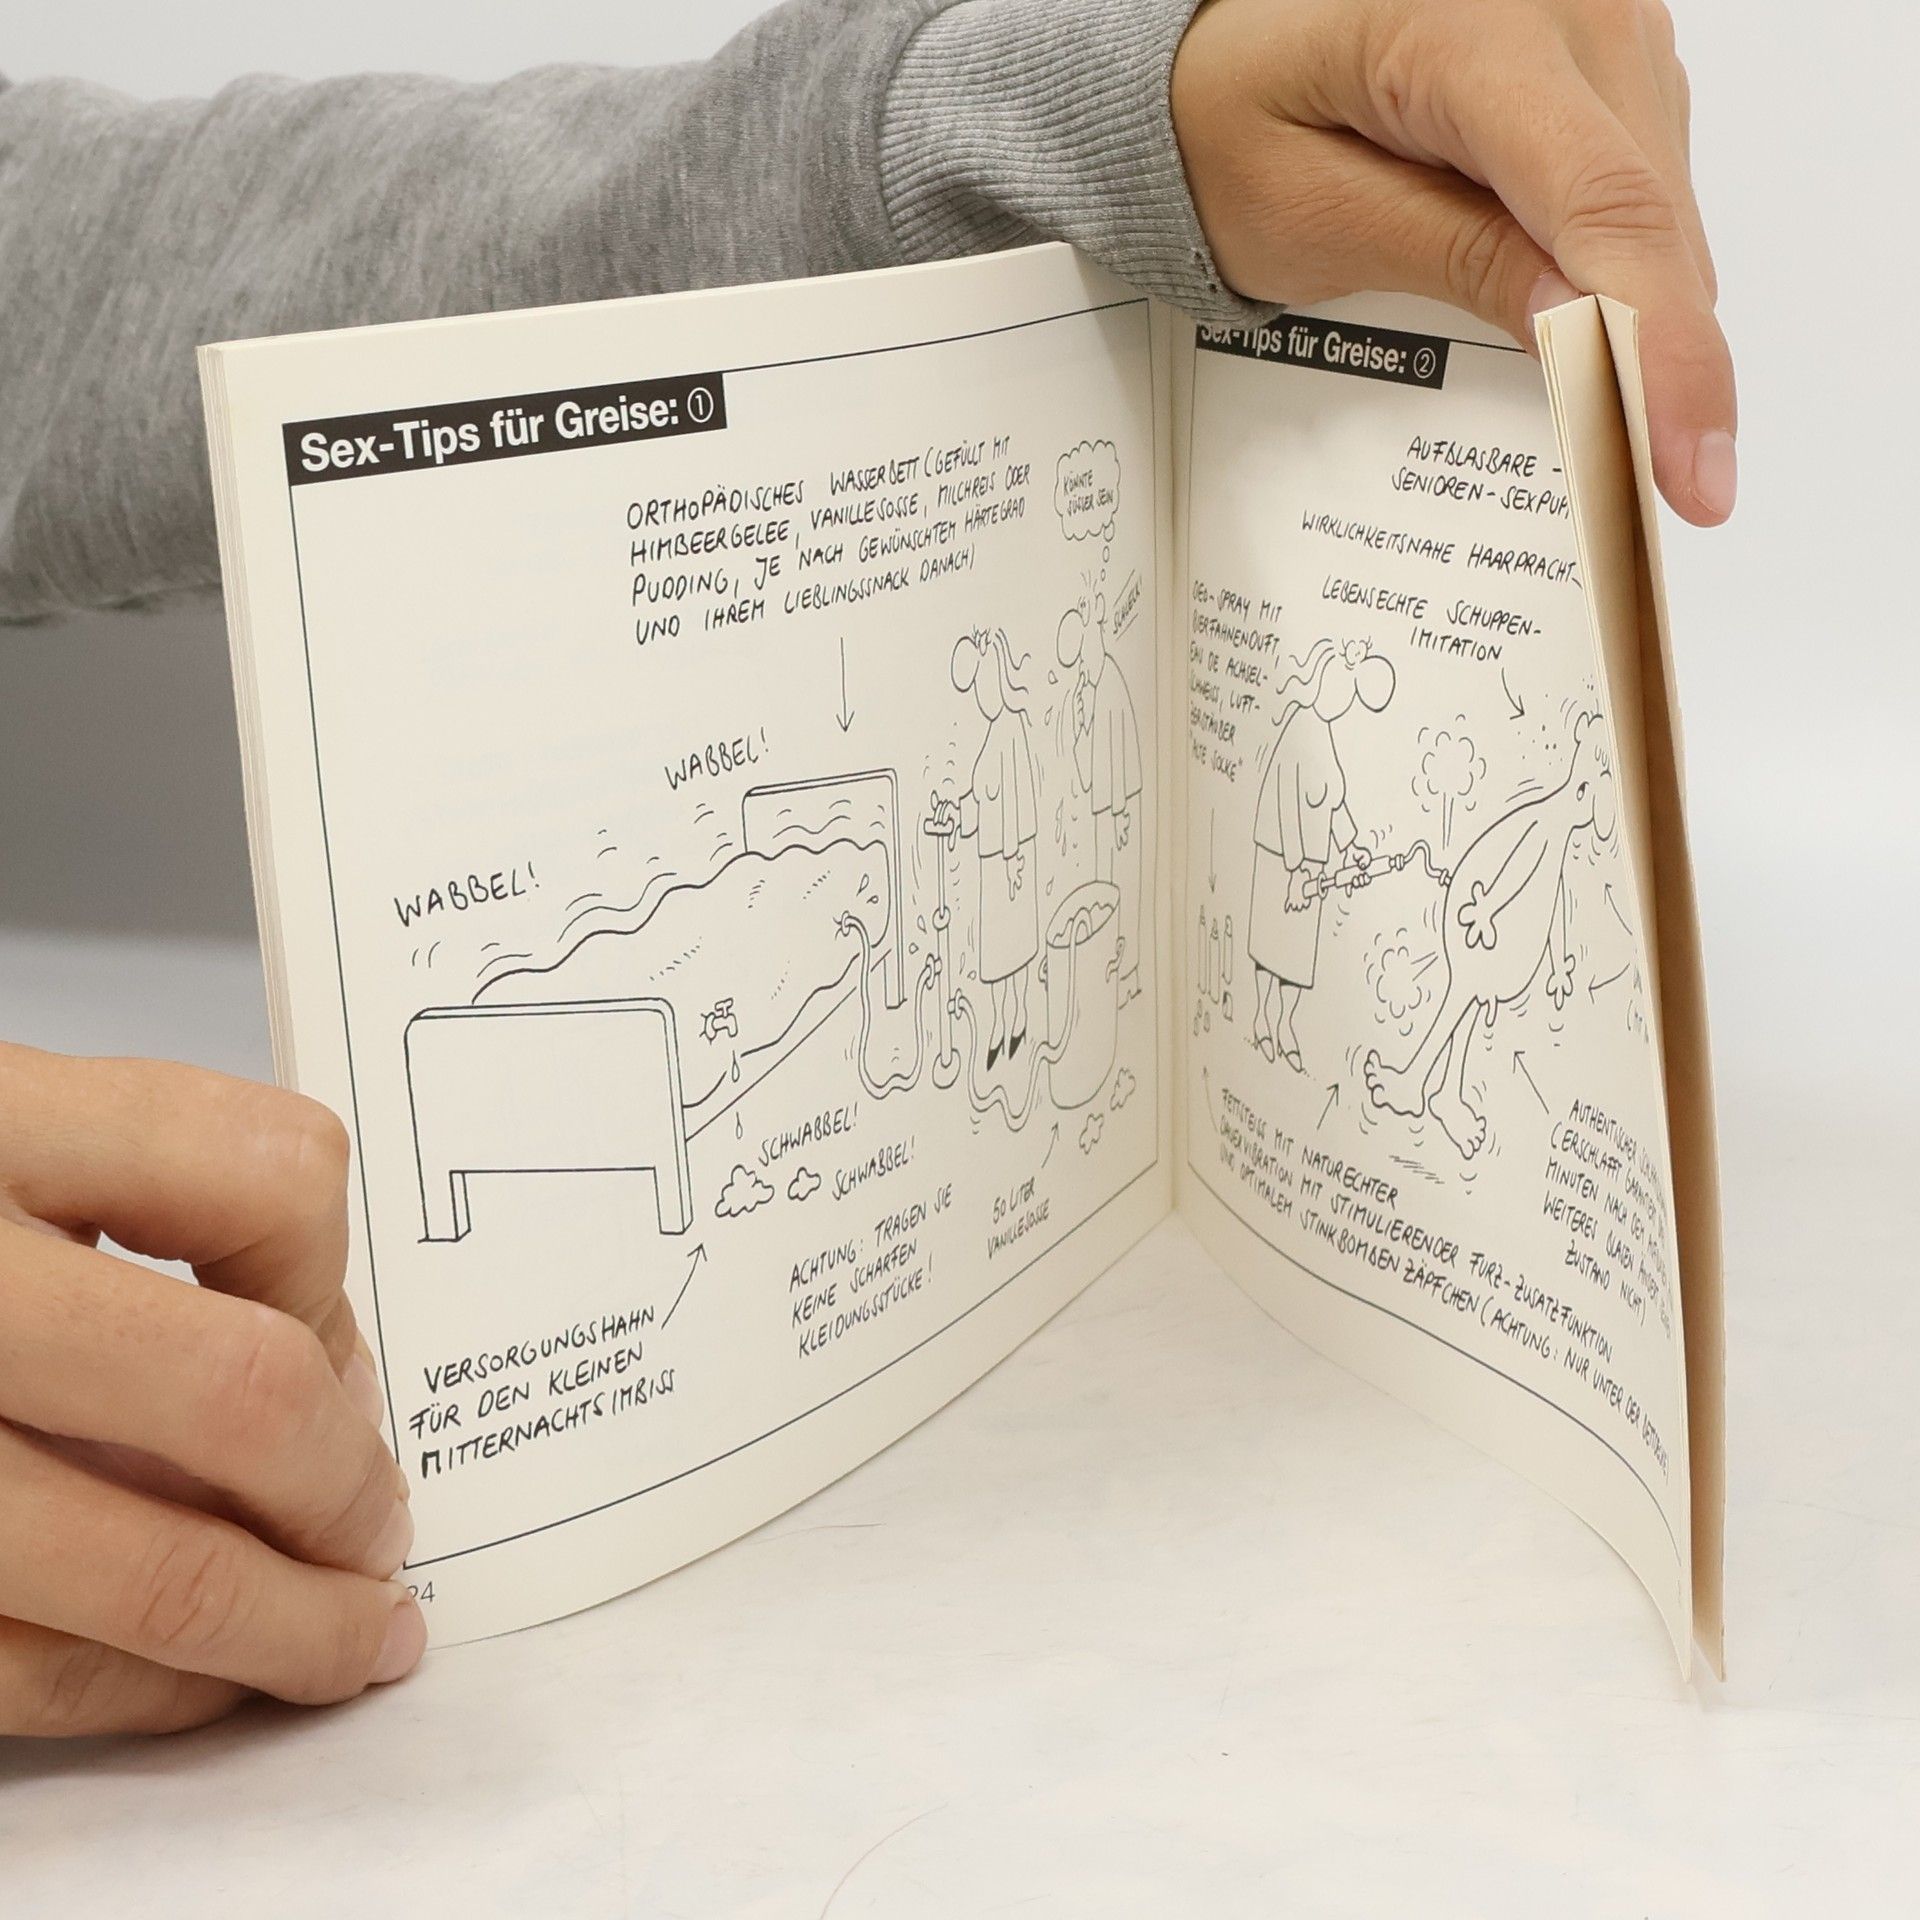 Sex-Tips für Greise: ①
ORTHOPÄDISCHES WASSERBETT (GEFÜLLT MIT
HIMBEERGELEE, VANILLESOSSE, MILCHREIS ODER
PUDDING, JE NACH GEWÜNSCHTEM HÄRTEGRAD
UND IHREM LIEBLINGSSNACK DANACH)
KÖNNTE
SÜSSER SEIN
SCHLECK!
WABBEL!
WABBEL!
SCHWABBEL!
SCHWABBEL!
ACHTUNG: TRAGEN SIE
KEINE SCHARFEN
KLEIDUNGSSTÜCKE!
50 LITER
VANILLESOSSE
VERSORGUNGSHAHN
FÜR DEN KLEINEN
MITTERNACHTSIMBISS
24
Sex-Tips für Greise: ②
AUFBLASBARE
SENIOREN-SEXPUP
WIRKLICHKEITSNAHE HAARPRACHT
LEBENSECHTE SCHUPPEN-
IMITATION
DEO-SPRAY MIT
BIERFAHNENDUFT,
EAU DE ACHSEL-
SCHWEISS, LUFT-
ZERSTÄUBER
"ALTE SOCKE"
FETTSTEISS MIT NATURECHTER
DAUERVIBRATION MIT STIMULIERENDER FURZ-ZUSATZFUNKTION
UND OPTIMALEM STINKBOMBEN ZÄPFCHEN (ACHTUNG: NUR UNTER DER
AUTHENTISCHER
(ERSCHLAFFT GARANTIERT
MINUTEN NACH DEM
WEITERES BLASEN ÄNDERT
ZUSTAND NICHT)